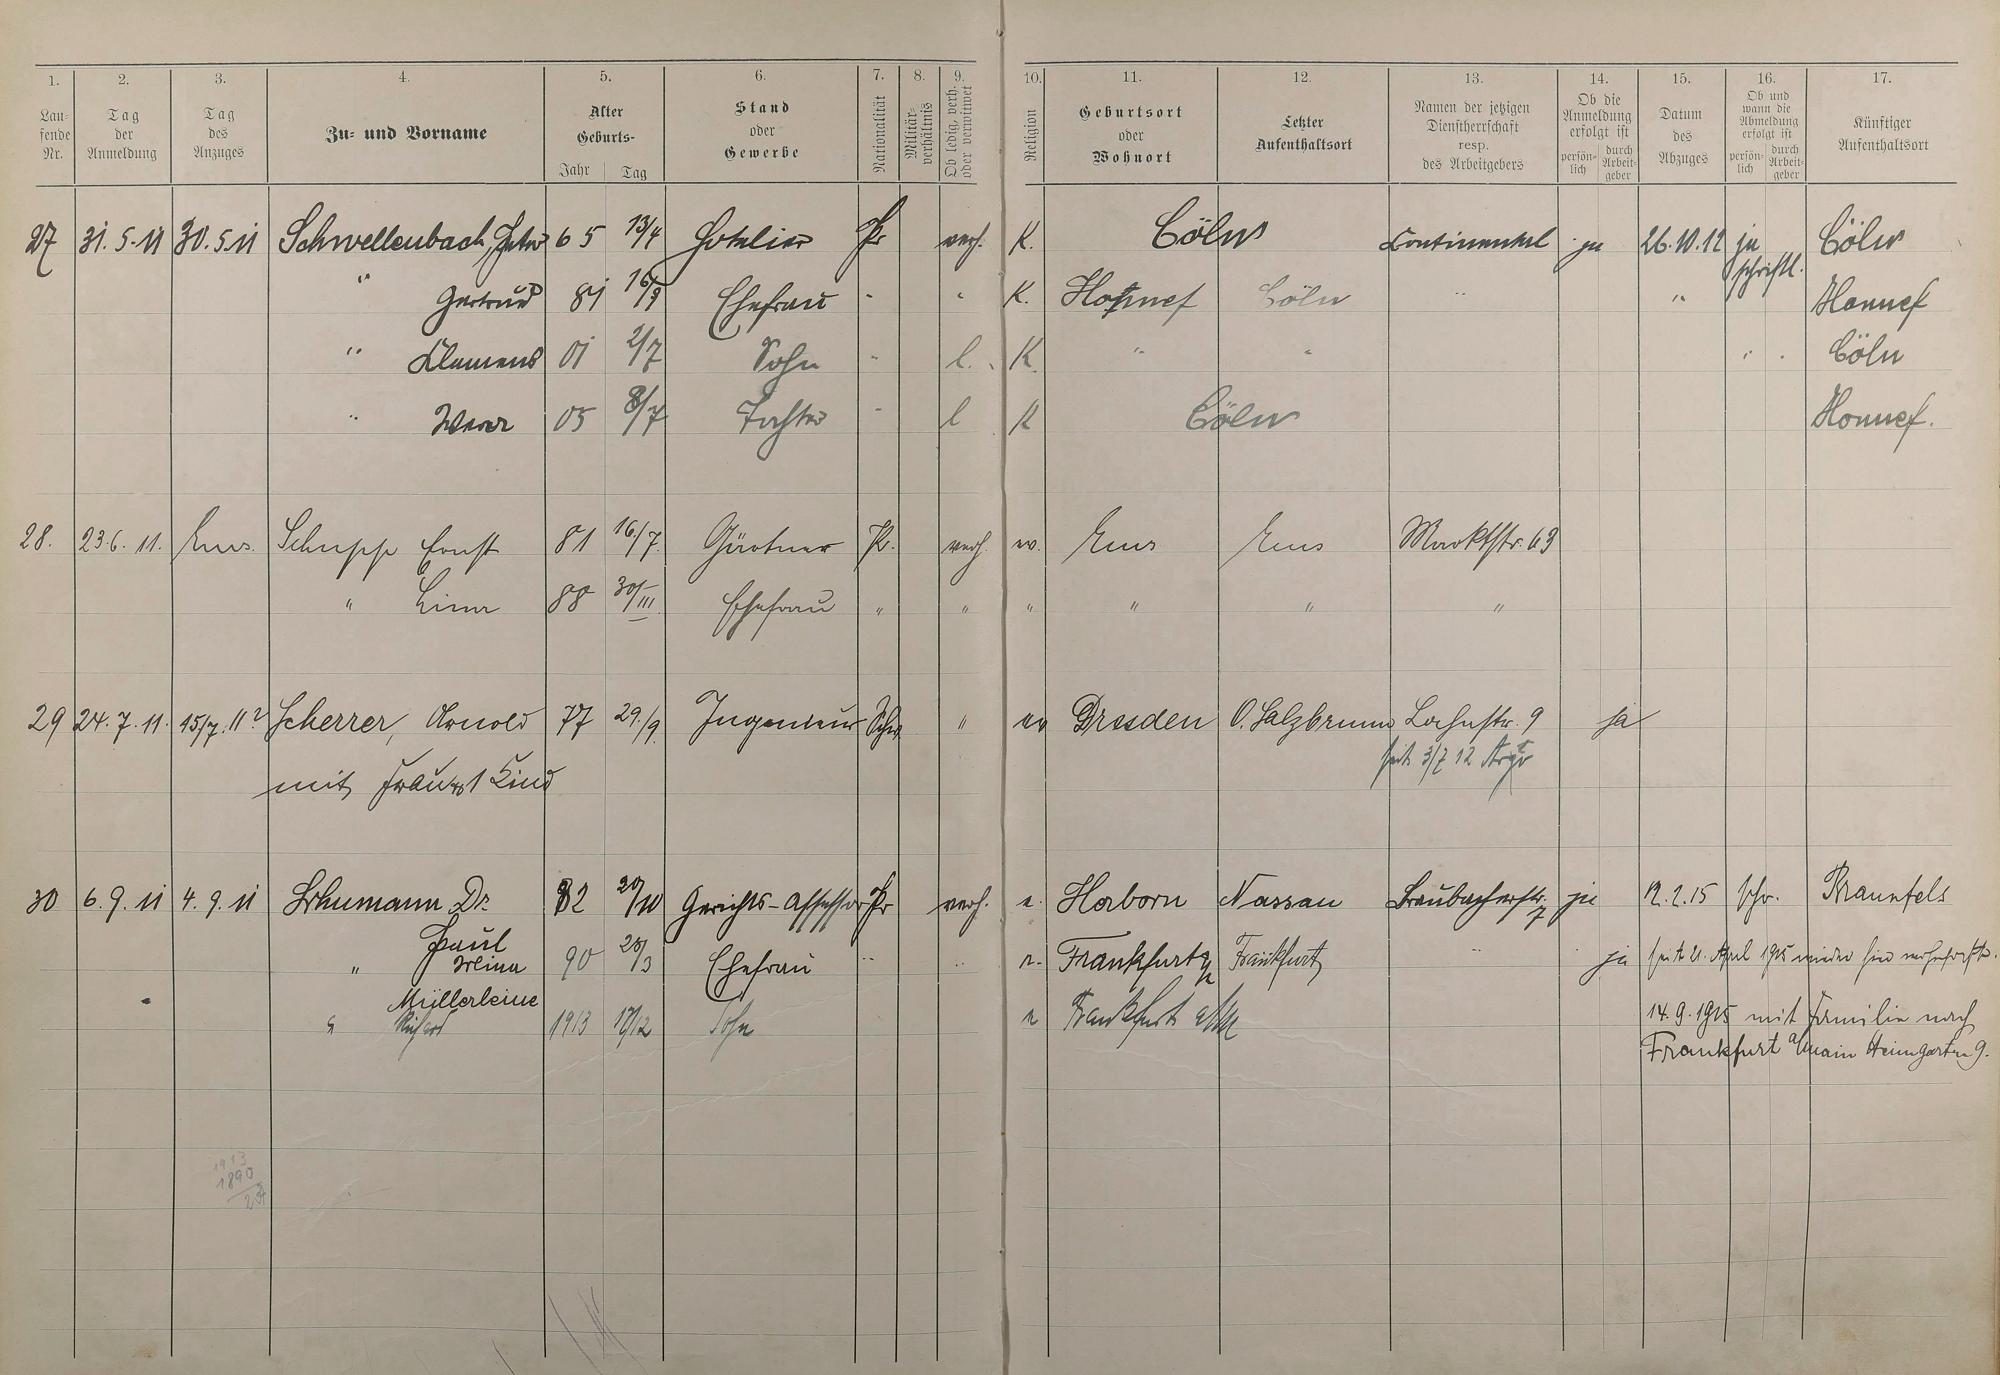 1. 2. 3. 4. 5. 6. 7. 8. 9. 10. 11. 12. 13. 14. 15. 16. 17.
Lau-
fende
Nr.
Tag
der
Anmeldung
Tag
des
Anzuges
Zu- und Vorname
Alter
Geburts-
Jahr Tag
Stand
oder
Gewerbe
Nationalität
Militär-
verhältnis
Ob ledig, verh.
oder verwitwet
Religion
Geburtsort
oder
Wohnort
Letzter
Aufenthaltsort
Namen der jetzigen
Dienstherrschaft
resp.
des Arbeitgebers
Ob die
Anmeldung
erfolgt ist
persön-
lich
durch
Arbeit-
geber
Datum
des
Abzuges
Ob und
wann die
Abmeldung
erfolgt ist
persön-
lich
durch
Arbeit-
geber
Künftiger
Aufenthaltsort
27 31.5.11 30.5.11 Schwellenbach, Peter 65 13/4 Hotelier Pr verh. K. Cöln Continental ja 26.10.12 ja schriftl. Cöln
" Gertrud 81 16/9 Ehefrau " " K. Honnef Cöln " " Honnef
" Clemens 01 2/7 Sohn " l. K. " " " Cöln
" 05 8/7 Tochter " l K Cöln Honnef.
28. 23.6.11. Ems. Schupp Ernst 81 16/7. Gärtner Pr. verh. ev. Ems Ems Marktstr. 63
" Lina 88 30/III. Ehefrau " " " " " "
29 24.7.11. 15/7.11? Scherrer, Arnold 77 29./9. Ingenieur Schw. " ev Dresden O. Salzbrunn Lahnstr. 9 ja
seit 3/7 12
mit Frau u. 1 Kind
30 6.9.11 4.9.11 Schumann Dr. 82 20/10 Gerichts-Assessor Pr verh. e. Herborn Nassau Braubacherstr. 7 ja 12.2.15 Braunfels
Paul
" 90 28/3 Ehefrau " " e. Frankfurt Frankfurt " ja seit 21. April 1915 wieder hier wohnhaft.
Müllerleine
" Richard 1913 17/12 Sohn e Frankfurt a/M
14.9.1915 mit Familie nach
Frankfurt a/Main Heimgarten 9.
1913
1890